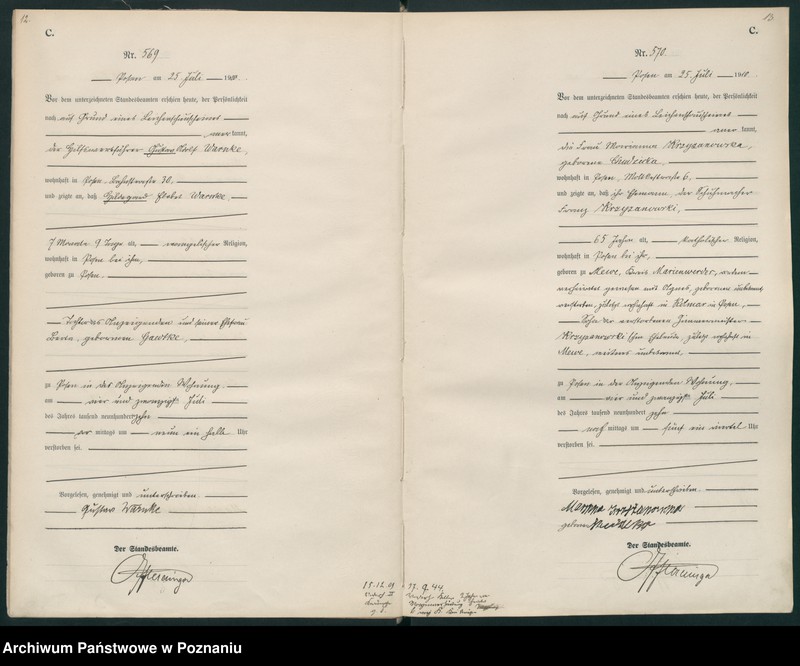 12.
C.
Nr. 569
Posen am 25 Juli 1910.
Vor dem unterzeichneten Standesbeamten erschien heute, der Persönlichkeit
nach auf Grund eines Leichenschauscheines
anerkannt,
der Hilfsweichenführer Gustav Adolf Warnke,
wohnhaft in Posen, 30,
und zeigte an, daß Hildegard Warnke,
7 Monate 9 Tage alt, evangelischer Religion,
wohnhaft in Posen bei ihm,
geboren zu Posen,
Tochter des Anzeigenden und seiner Ehefrau
geborenen
zu Posen in des Anzeigenden Wohnung,
am vier und zwanzigsten Juli
des Jahres tausend neunhundert zehn
vor mittags um neun ein halb Uhr
verstorben sei.
Vorgelesen, genehmigt und unterschrieben
Gustav Warnke
Der Standesbeamte.
13.
C.
Nr. 570.
Posen am 25 Juli 1910.
Vor dem unterzeichneten Standesbeamten erschien heute, der Persönlichkeit
nach auf Grund eines Leichenschauscheines
anerkannt,
die Frau Marianna Krzyzanowska,
geborene
wohnhaft in Posen, 6,
und zeigte an, daß ihr Ehemann, der Schuhmacher
Franz Krzyzanowski,
65 Jahre alt, katholischer Religion,
wohnhaft in Posen bei ihr,
geboren zu Mewe, Kreis Marienwerder,
verheiratet gewesen mit Agnes, geborenen unbekannt,
verstorben, zuletzt wohnhaft in in Posen,
Sohn des verstorbenen Zimmermeister
Krzyzanowski zuletzt wohnhaft in
Mewe, unbekannt,
zu Posen in der Anzeigenden Wohnung,
am vier und zwanzigsten Juli
des Jahres tausend neunhundert zehn
nach mittags um fünf ein viertel Uhr
verstorben sei.
Vorgelesen, genehmigt und unterschrieben
geborene
Der Standesbeamte.
Archiwum Państwowe w Poznaniu